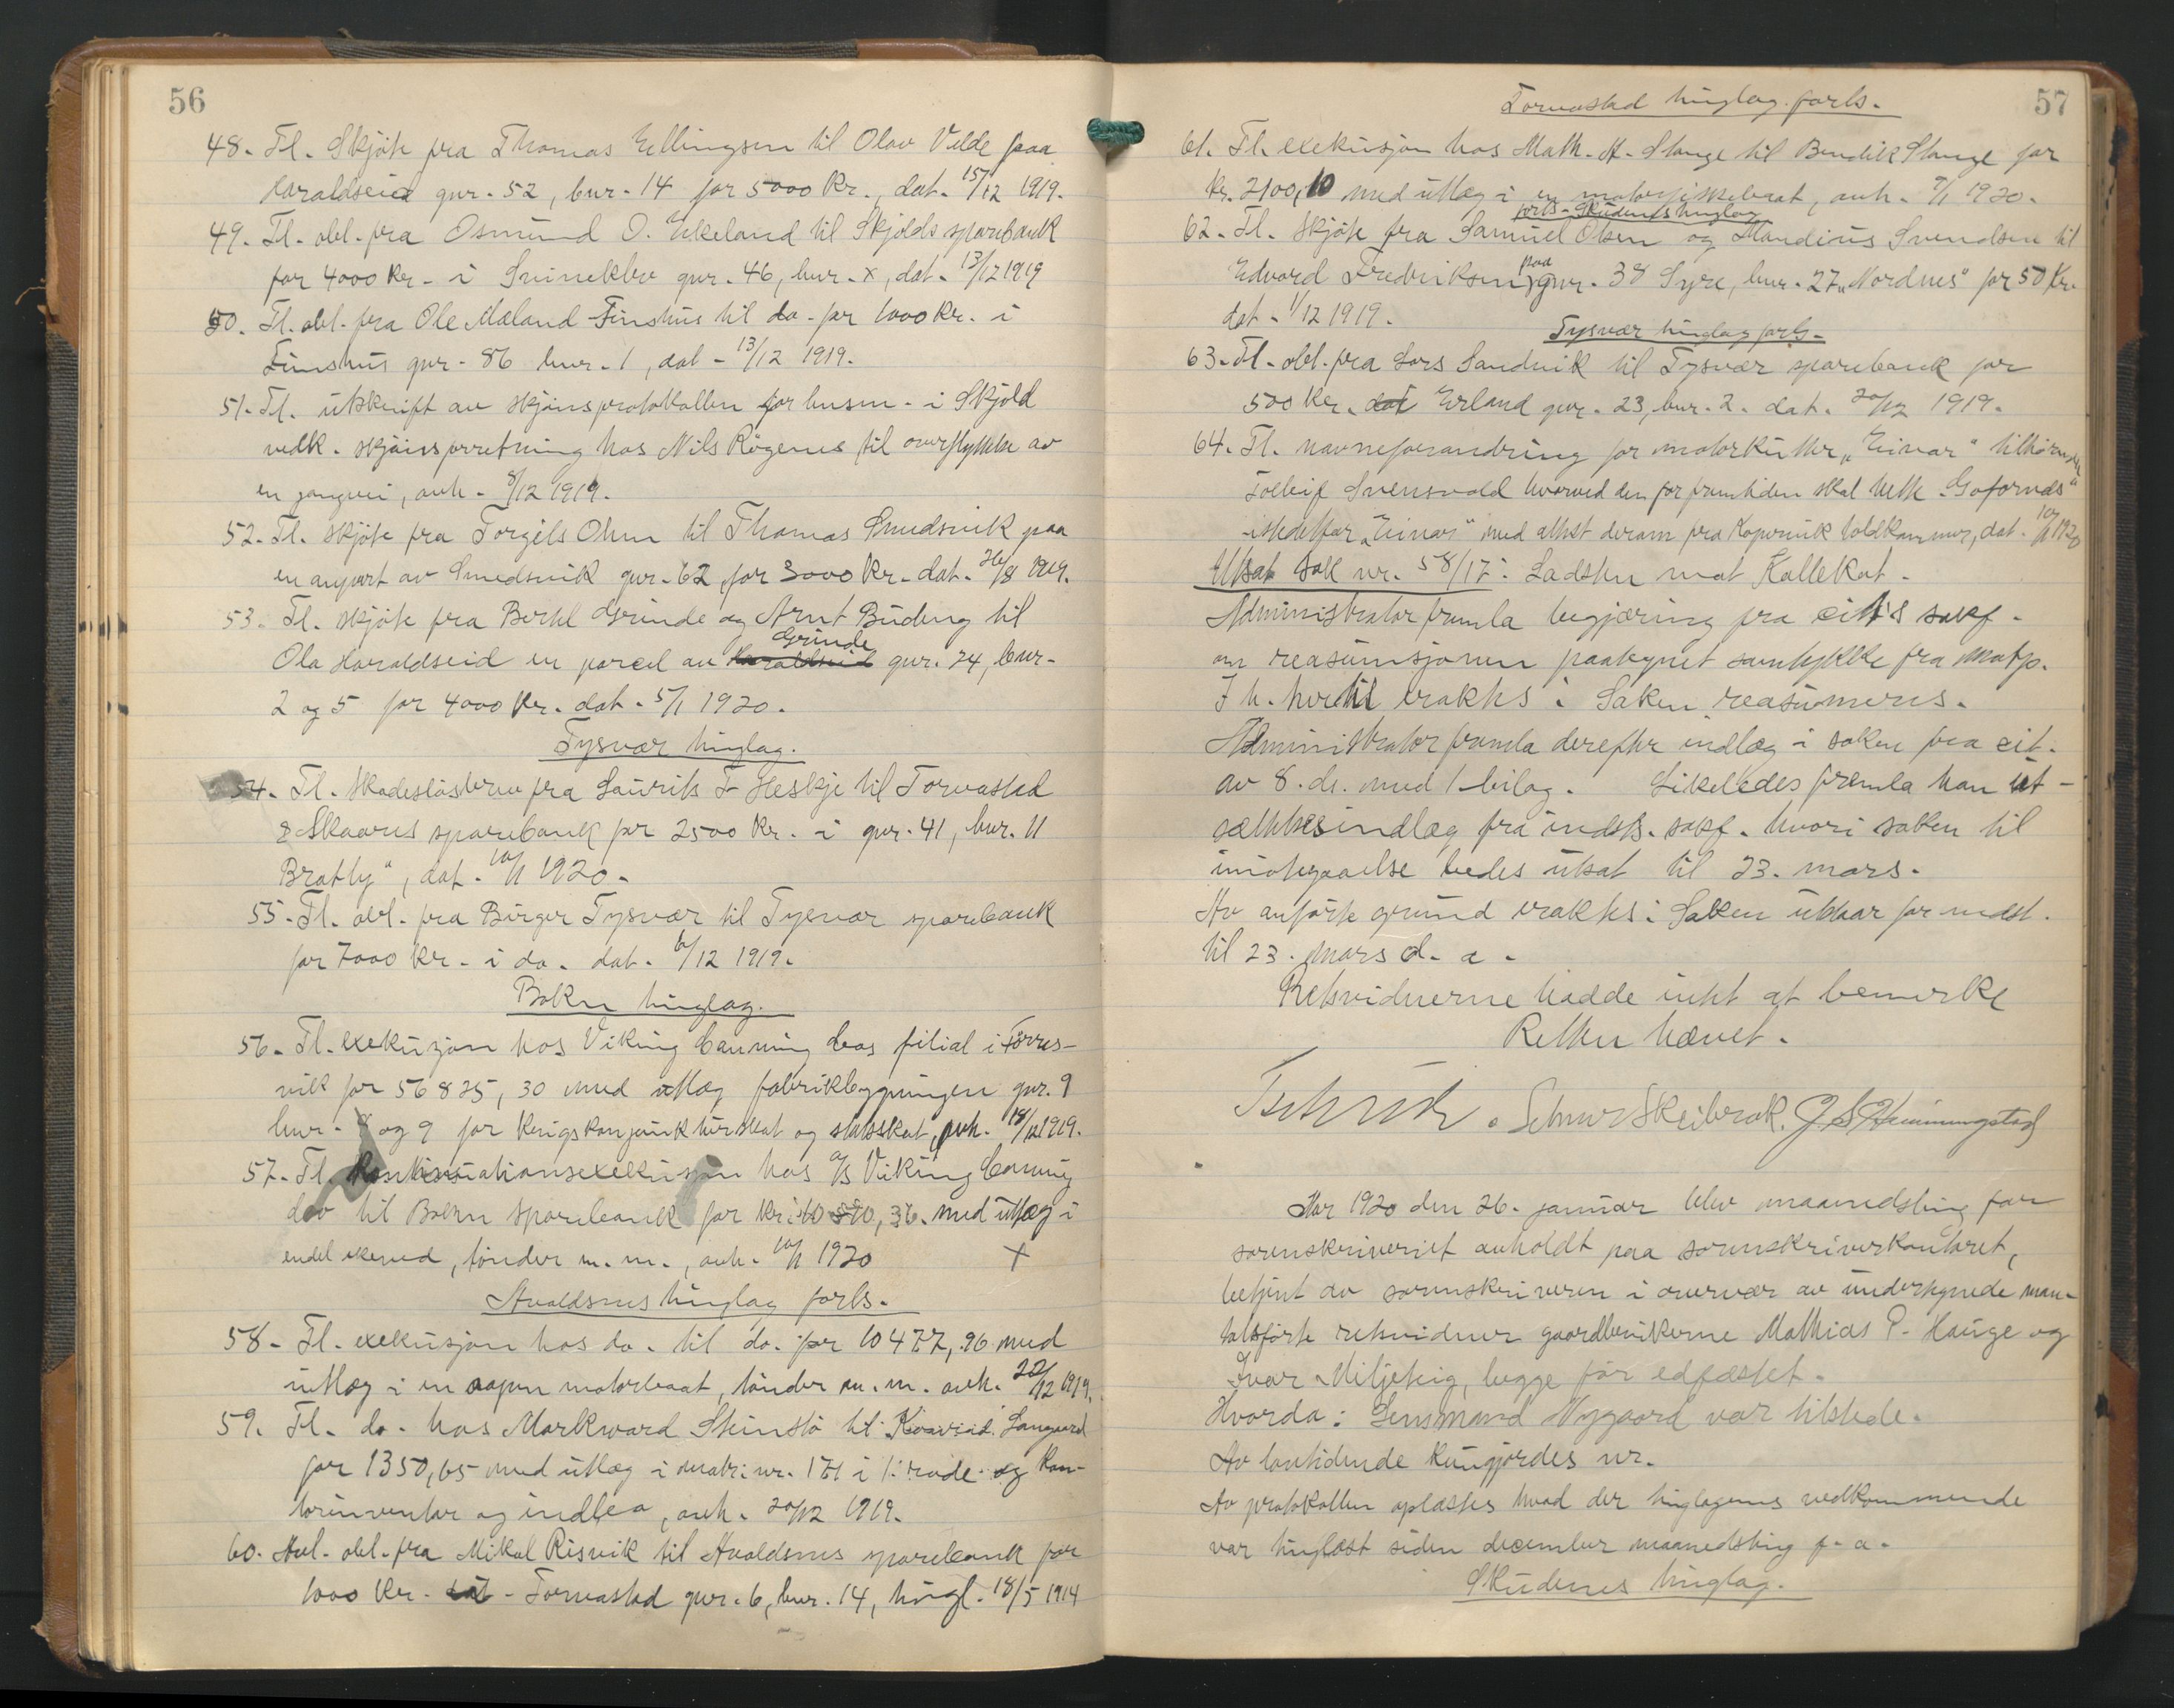 56
48. Tl. Skjöte fra Thomas Ellingsen til Olav Velde paa
Haraldseid gnr. 52, bnr. 14 for 5000 Kr., dat. 15/12 1919.
49. Tl. obl. fra Osmund O. Ekeland til Skjolds sparebank
for 4000 Kr. i Svineklev gnr. 46, bnr. x, dat. 13/12 1919
50. Tl. obl. fra Ole Mæland Finshus til do. for 1000 Kr. i
Finshus gnr. 86 bnr. 1, dat. 13/12 1919.
51. Tl. utskrift av skjönsprotokollen for lensm. i Skjold
vedk. skjönsforretning hos Nils Rögenes til overflyttelse av
en gangvei, avh. 8/12 1919.
52. Tl. skjöte fra Torgils Olsen til Thomas Smedsvik paa
en anpart av Smedsvik gnr. 62 for 3000 Kr. dat. 26/8 1919.
53. Tl. skjöte fra Bertel Grinde og Arnt Buderg til
Ola Haraldseid en parcel av Haraldseid Grinde gnr. 24, bnr.
2 og 5 for 4000 Kr. dat. 5/1 1920.
Tysvær tinglag.
54. Tl. skadeslösbrev fra Laurits T. Heskje til Torvastad
& Skaares sparebank for 2500 Kr. i gnr. 41, bnr. 11
Bratly", dat. 10/1 1920.
55. Tl. obl. fra Birger Tysvær til Tysvær sparebank
for 7000 Kr. i do. dat. 6/12 1919.
Bokn tinglag.
56. Tl. exekusjon hos Viking Canning Cos filial i Förres-
vik for 56825,30 med utlæg fabrikbygningen gnr. 9
bnr. 8 og 9 for Krigskonjunkturskat og statsskat, avh. 18/12 1919.
57. Tl. Kontinuationsexekusjon hos A/S Viking Canning
Co til Bokn sparebank for Kr. 10 510,36. med utlæg i
endel ekeved, tönder m. m., avh. 10/1 1920 +
Avaldsnes tinglag forts.
58. Tl. exekusjon hos do. til do. for 10477,96 med
utlæg i en aapen motorbaat, tönder m. m. avh. 22/12 1919.
59. Tl. do. hos Markward Stensö til Konrad Langaard
for 1350,65 med utlæg i matr. nr. 171 i 1. rode og Kon-
torinventar og indlea, avh. 20/12 1919.
60. Avl. obl. fra Mikal Risvik til Avaldsnes sparebank for
1000 Kr. dat - Torvastad gnr. 6, bnr. 14, tingl. 18/5 1914
Torvastad tinglag forts.
57
61. Tl. exekusjon hos Math. A. Stange til Bendik Stange for
Kr. 2100,10 med utlæg i en motorfiskebaat, avh. 7/1 1920.
forts. Skudenes tinglag
62. Tl. skjöte fra Samuel Olsen og Mandius Svendsen til
Edvard Fredriksen paa gnr. 38 Syre, bnr. 27 „Nordnes" for 50 Kr.
dat. 1/12 1919.
Tysvær tinglag forts.
63. Tl. obl. fra Lars Sandvik til Tysvær sparebank for
500 Kr. dat Erland gnr. 23, bnr. 2. dat. 20/12 1919.
64. Tl. navneforandring for motorkutter „Einar" tilhörende
Tolleif Svensvold hvorved den for fremtiden skal hete „Goforvds"
istedetfor „Einar" med attest derom fra Kopervik toldkammer, dat. 10/1 1920
Utsat sak nr. 58/17: Ladsten mot Kallekat.
Administrator fremla begjæring fra cit's sakf.
om reasumsjonen paategnet samtykke fra motp.
I h. hvertil eraktes: Saken reasumeres.
Administrator fremla derefter indlæg i saken fra cit.
av 8. ds. med 1 bilag. Likeledes fremla han ut-
sættelsesindlæg fra indst. sakf. hvori saken til
imötegaaelse bedes utsat til 23. mars.
Av anförte grund eraktes: Saken utstaar for indst.
til 23. mars d. a.
Retsvidnerne hadde intet at bemerke
Retten hævet.
Schnr Skeibrok. J S Hemmingstad
Aar 1920 den 26. januar blev maanedsting for
sorenskriveriet avholdt paa sorenskriverkontoret,
betjent av sorenskriveren i overvær av undertegnede man-
talsförte retsvidner gaardbrukerne Mathias P. Hauge og
Ivar Miljeteig, begge för edfæstet.
Hvorda: Lensmand Nygaard var tilstede.
Av lovtidende kungjordes nr.
Av protokollen oplæstes hvad der tinglagenes vedkommende
var tinglæst siden december maanedsting f. a.
Skudenes tinglag.